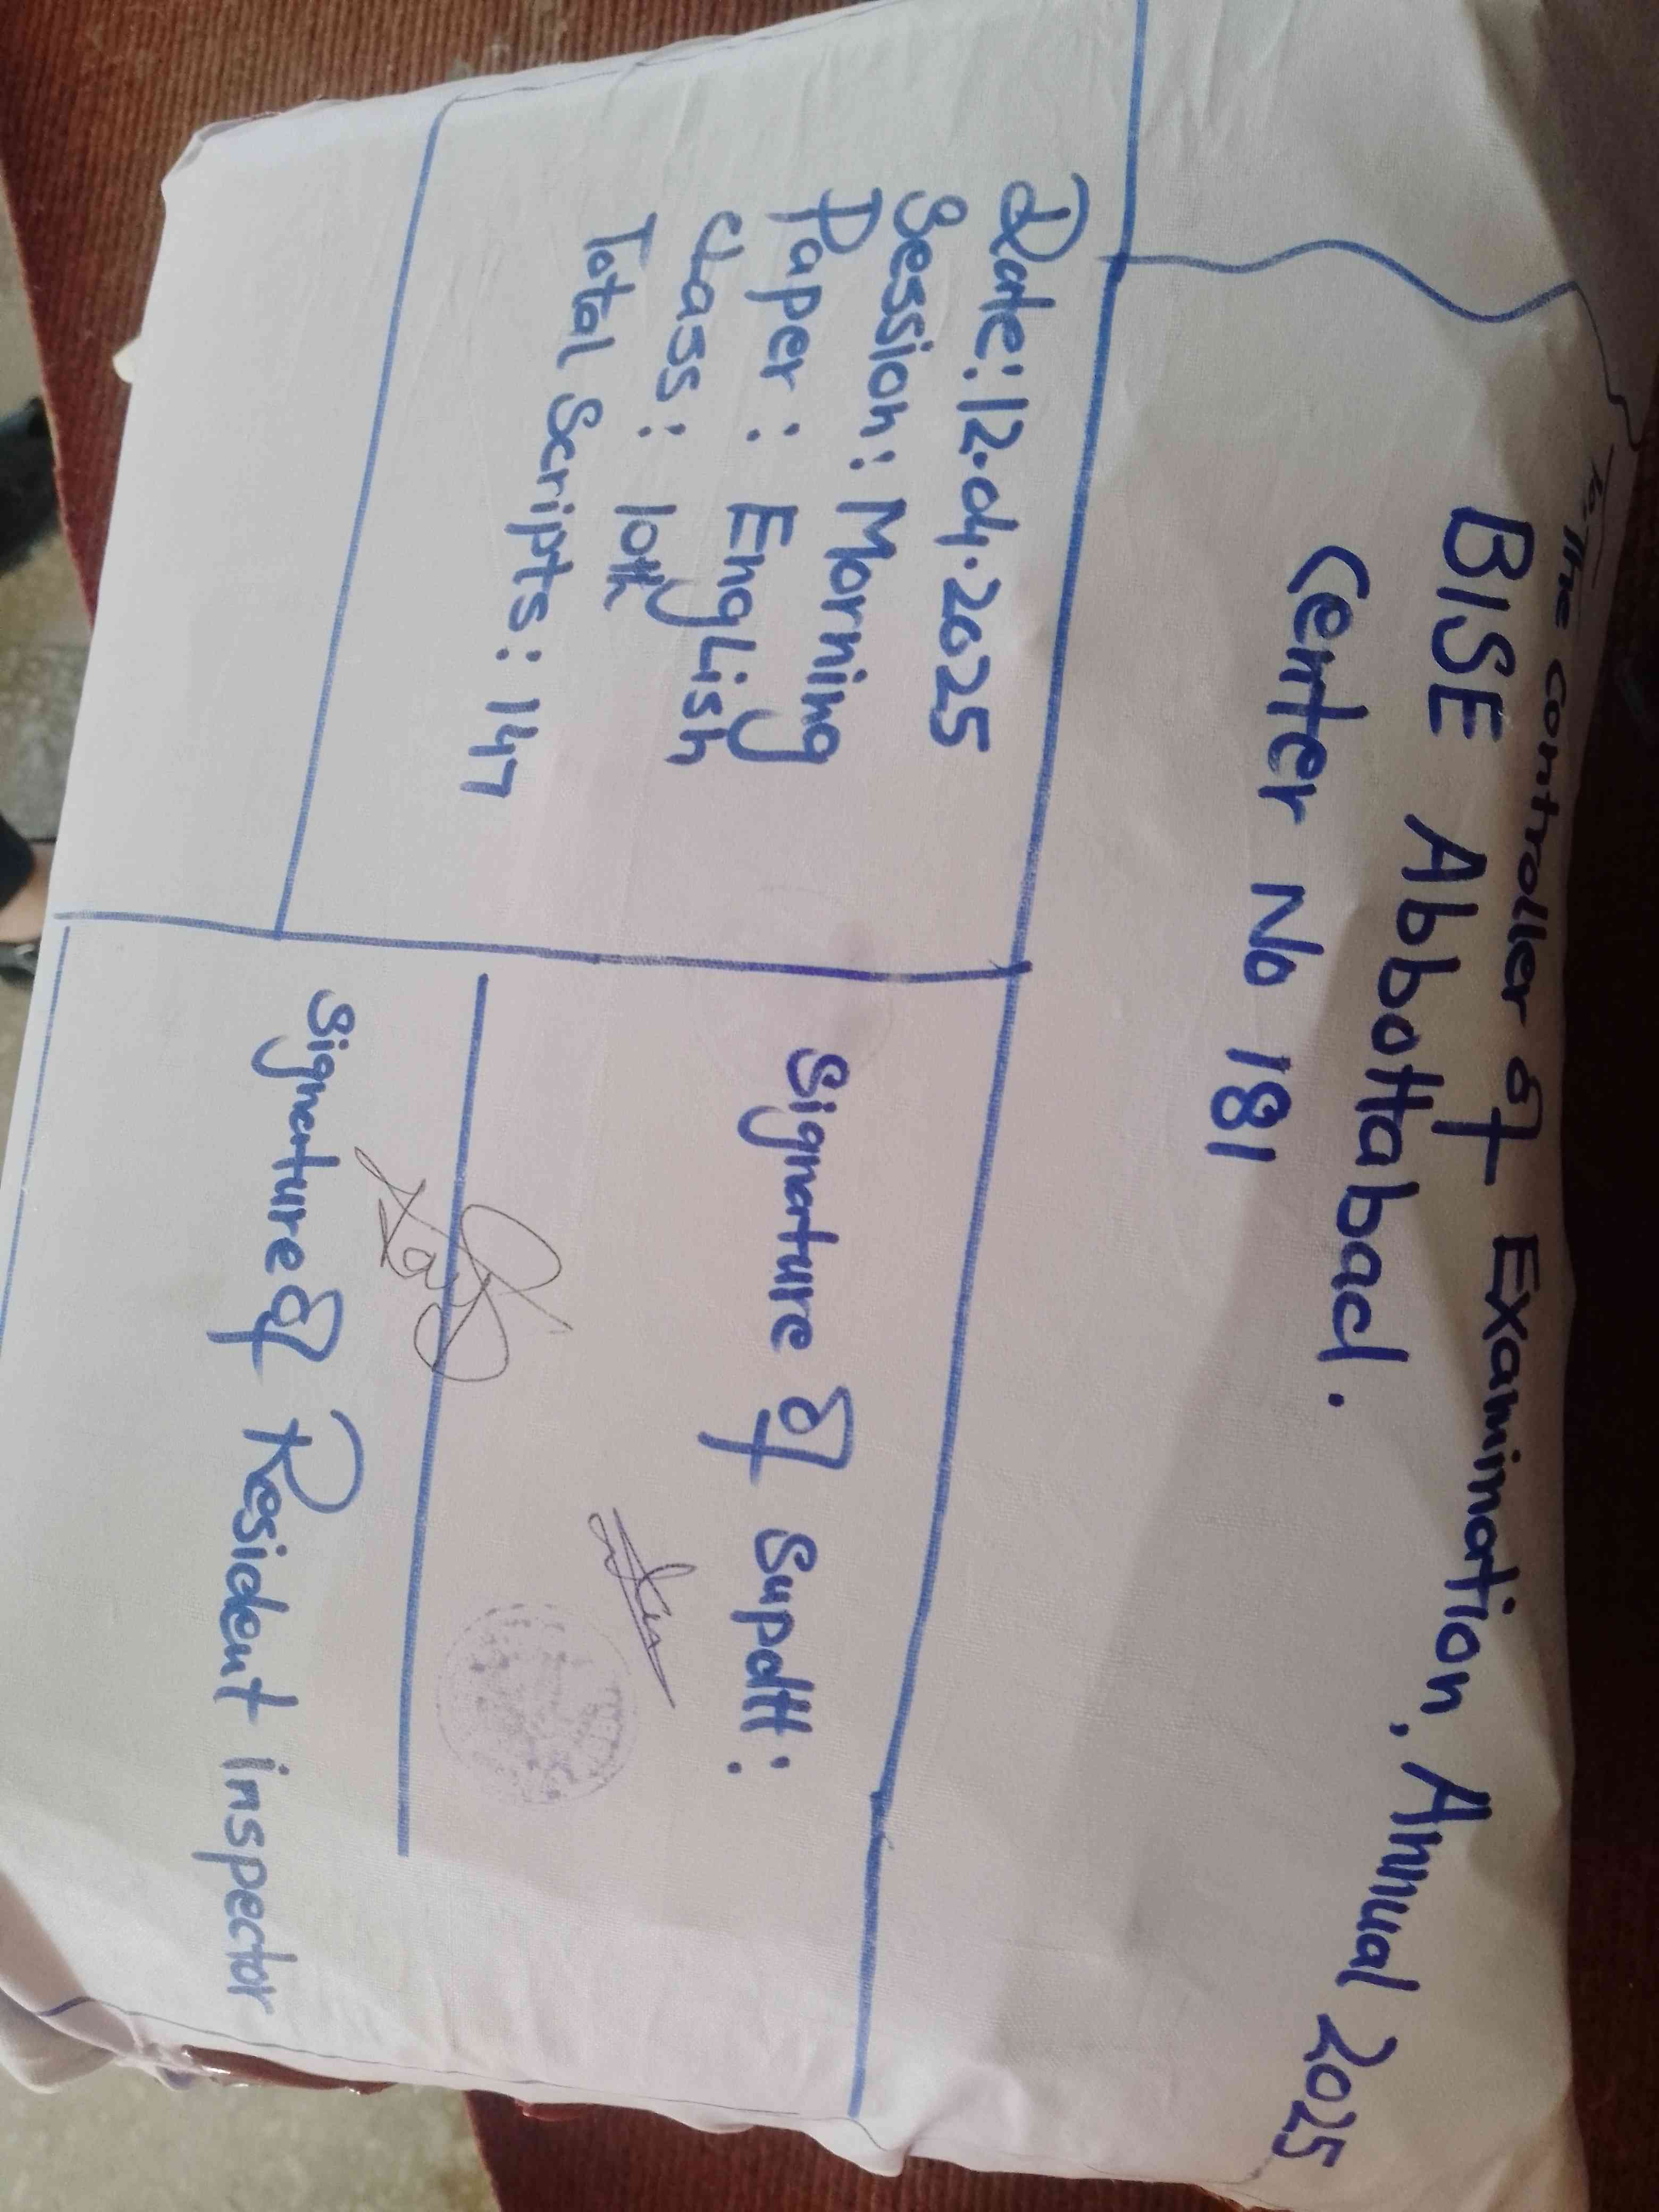 To: The Controller of Examination, Annual 2025
BISE Abbottabad.
Center No 181
Date: 12.04.2025
Session: Morning
Paper: English
Class: 10th
Total Scripts: 147
Signature of Supdtt:
Signature of Resident inspector